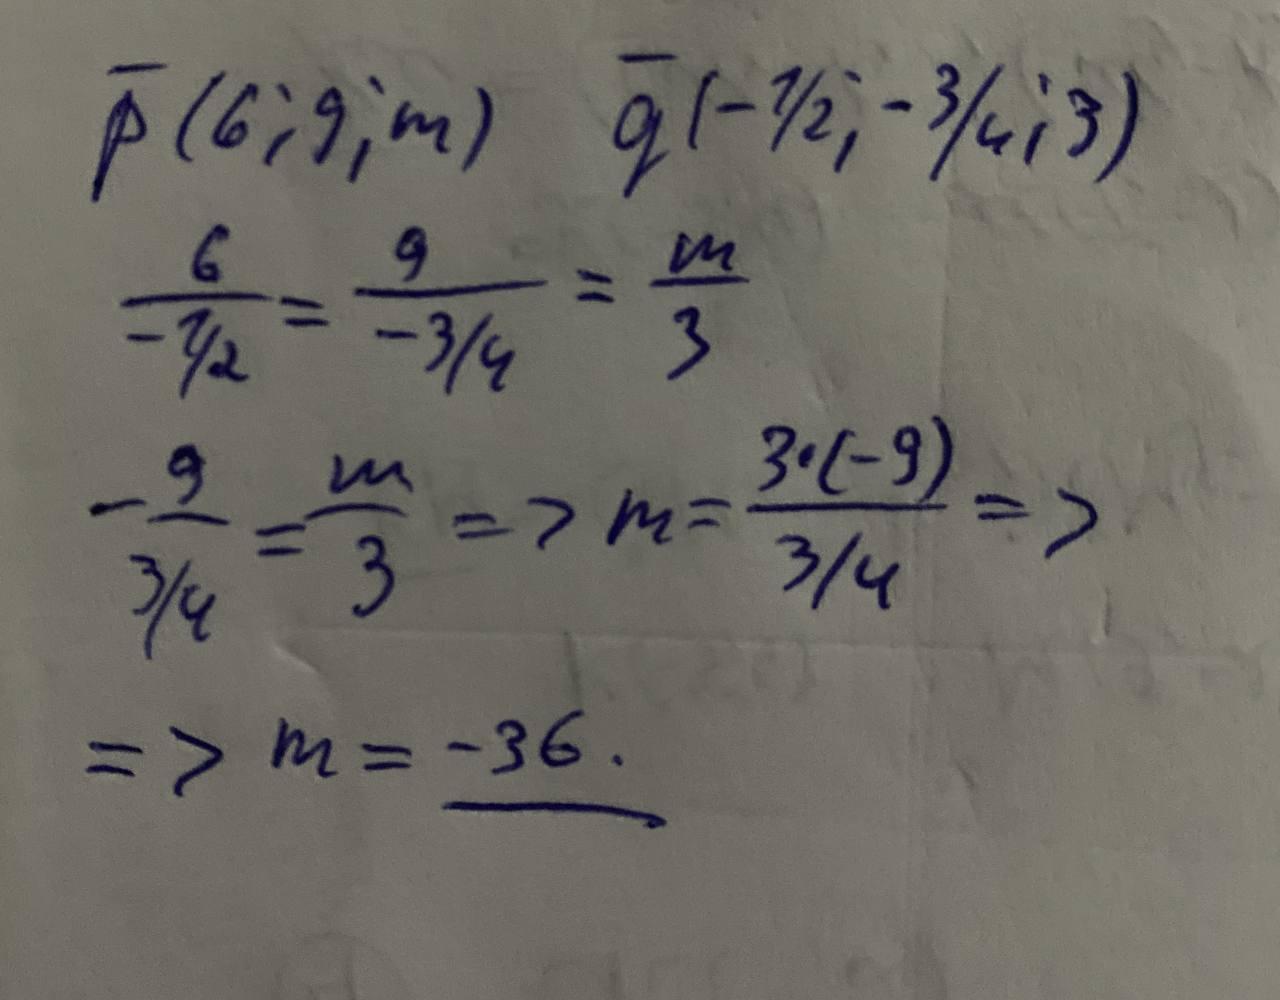 p̅ (6; 9; m) q̅ (-1/2; -3/4; 3)
6/(-1/2) = 9/(-3/4) = m/3
-9/(3/4) = m/3 => m = 3·(-9)/(3/4) =>
=> m = -36.